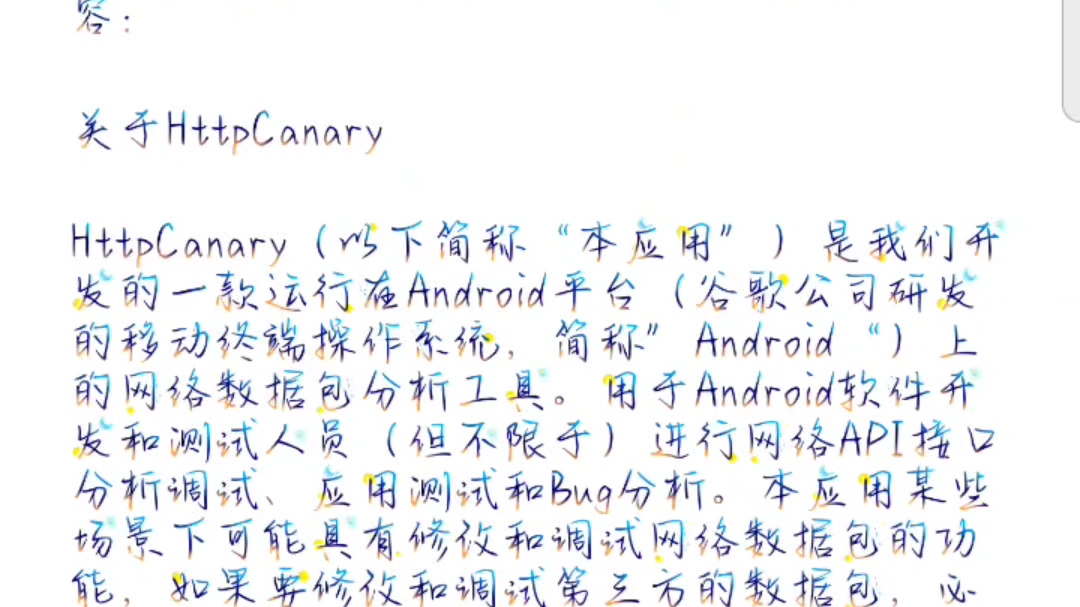 容：
关于HttpCanary
HttpCanary（以下简称“本应用”）是我们开
发的一款运行在Android平台（谷歌公司研发
的移动终端操作系统，简称”Android“）上
的网络数据包分析工具。用于Android软件开
发和测试人员（但不限于）进行网络API接口
分析调试、应用测试和Bug分析。本应用某些
场景下可能具有修改和调试网络数据包的功
能，如果要修改和调试第三方的数据包，必